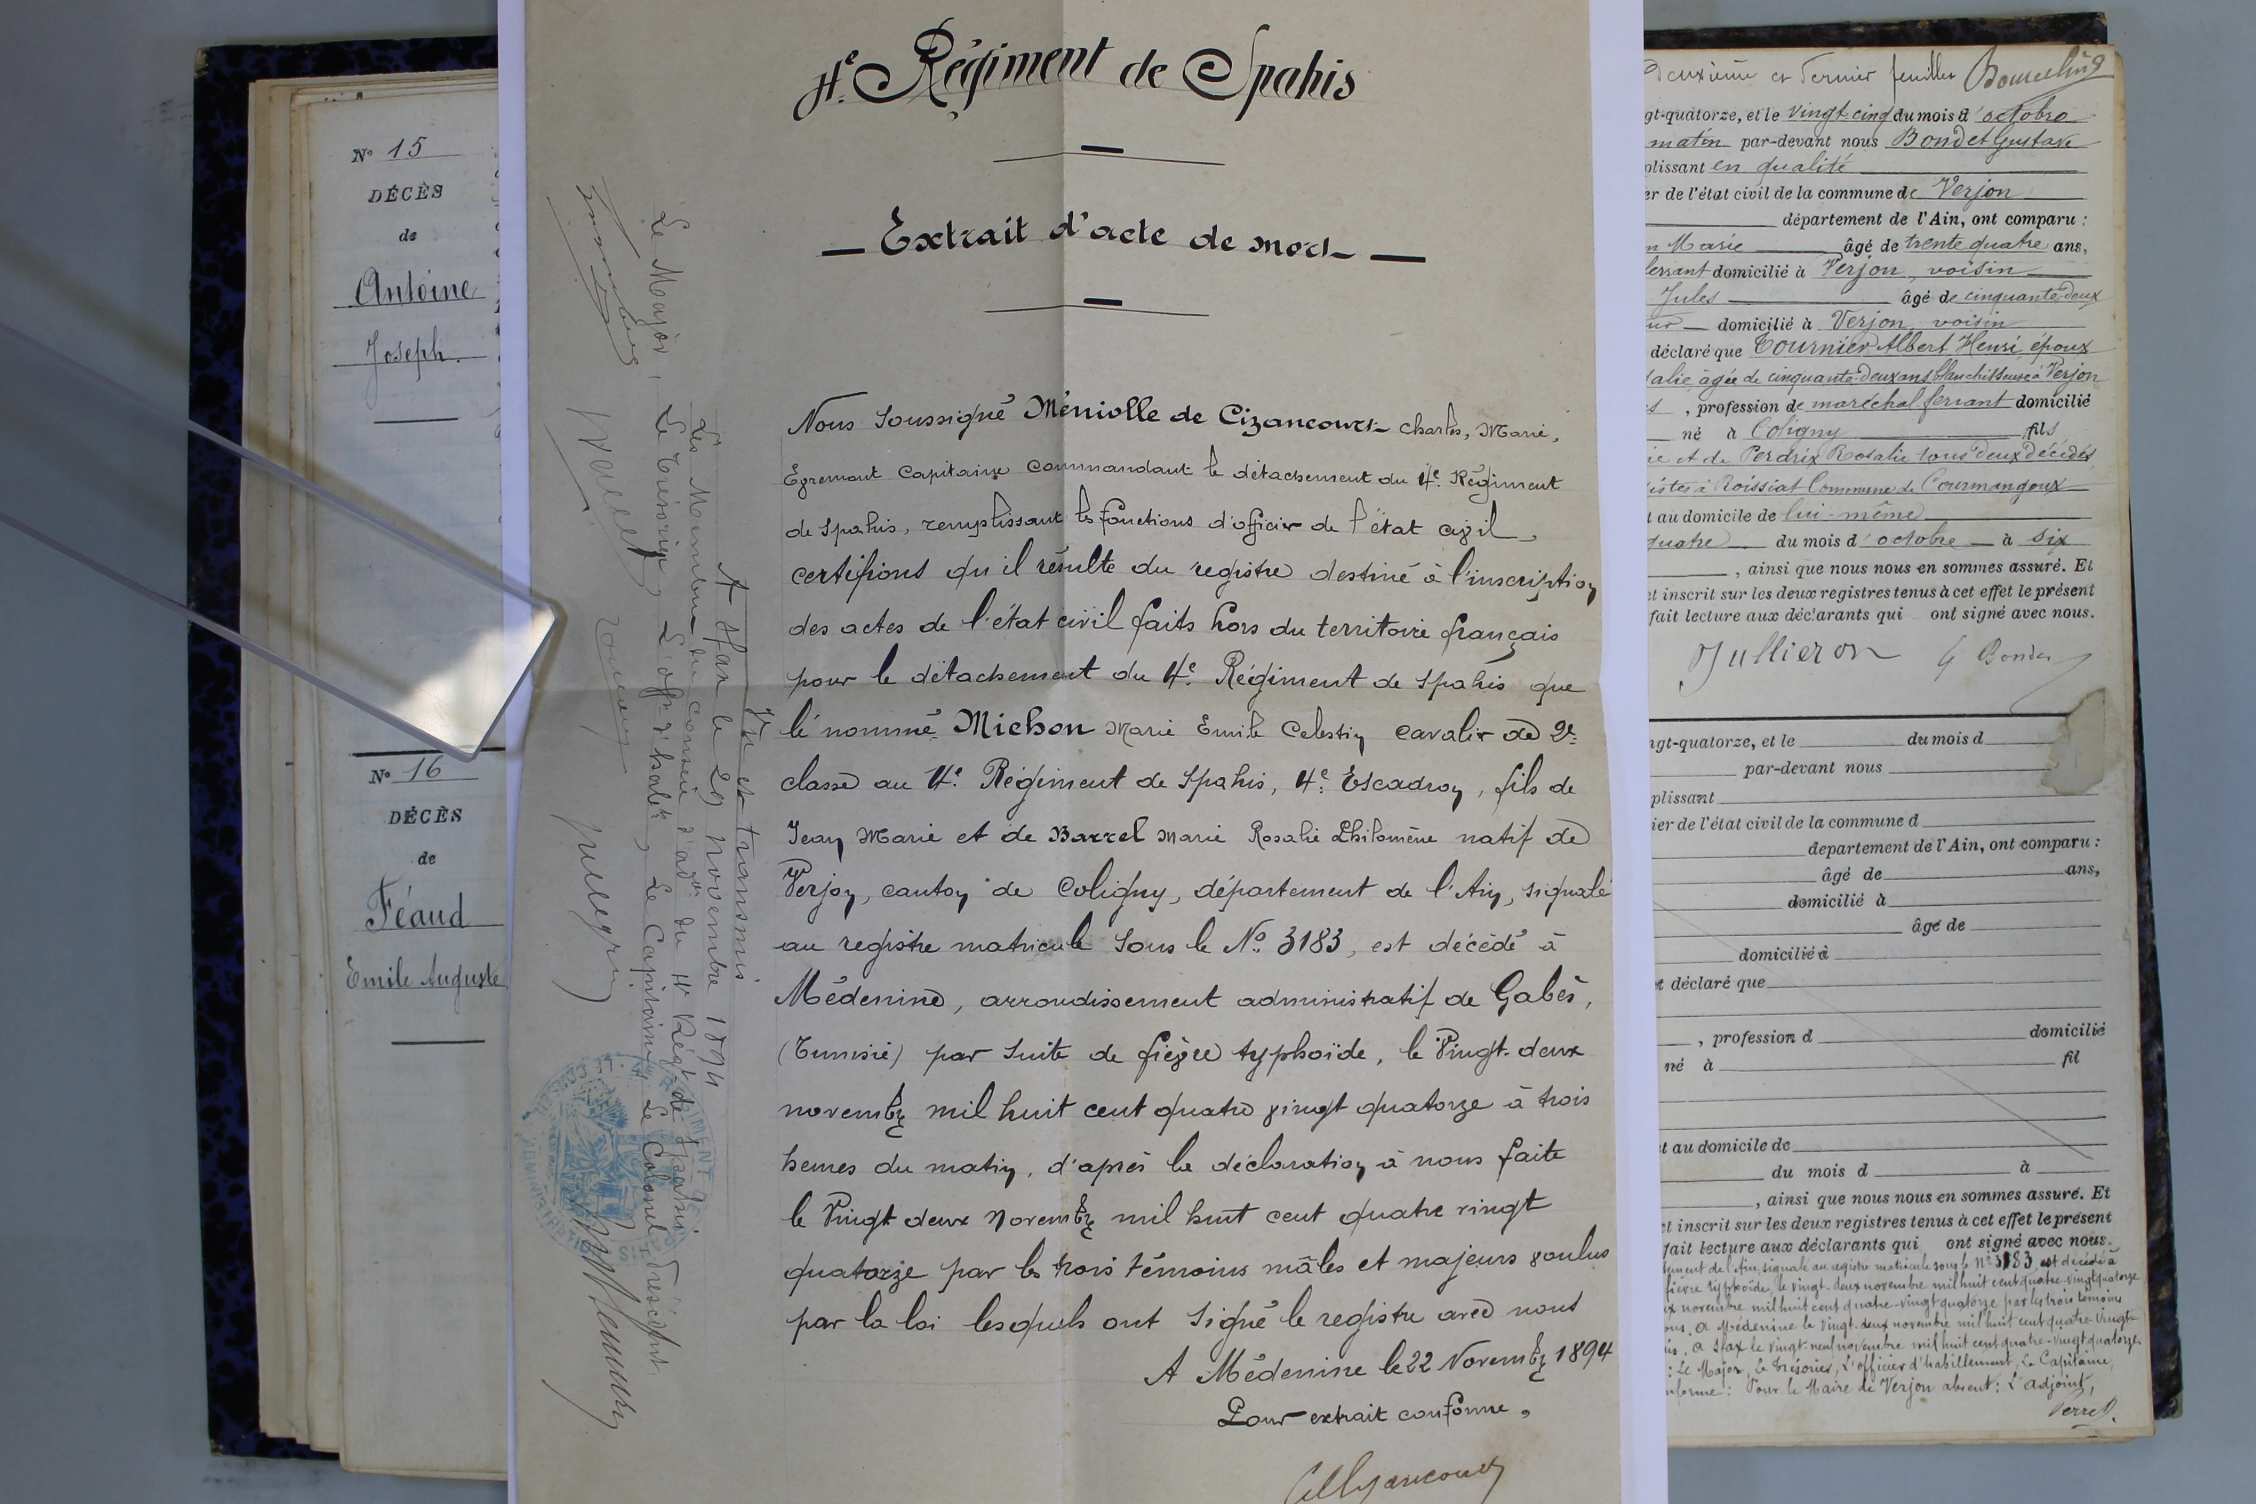 N° 15
DÉCÈS
de
Antoine
Joseph.
N° 16
DÉCÈS
de
Féaud
Emile Auguste
4e. Régiment de Spahis
Extrait d'acte de mort
Nous Soussigné Méniolle de Cizancourt Charles, Marie,
Egremont Capitaine Commandant le détachement du 4e. Régiment
de Spahis, remplissant les fonctions d'officier de l'état civil,
certifions qu'il résulte du registre destiné à l'inscription
des actes de l'état civil faits hors du territoire français
pour le détachement du 4e. Régiment de Spahis que
le nommé Michon Marie Emile Celestin cavalier de 2e.
classe au 4e. Régiment de Spahis, 4e. Escadron, fils de
Jean Marie et de Barrel Marie Rosalie Philomène natif de
Verjon, canton de Coligny, département de l'Ain, signalé
au registre matricule sous le No. 3183, est décédé à
Médenine, arrondissement administratif de Gabès,
(Tunisie) par suite de fièvre typhoïde, le Vingt-deux
novembre mil huit cent quatre vingt quatorze à trois
heures du matin, d'après la déclaration à nous faite
le Vingt deux Novembre mil huit cent quatre vingt
quatorze par les trois témoins mâles et majeurs voulus
par la loi lesquels ont signé le registre avec nous
A Médenine le 22 Novembre 1894
Pour extrait conforme,
Vu et transmis
A Sfax le 29 novembre 1894
Les Membres du conseil d'adon du 4e Régt de Spahis
Le Major, Le Trésorier, L'offr d'habt, Le Capitaine, Le Colonel Président
Deuxième et dernier feuillet
gt-quatorze, et le vingt-cinq du mois d'octobre
matin par-devant nous Bondet Gustave
plissant en qualité
er de l'état civil de la commune de Verjon
département de l'Ain, ont comparu :
n Marie âgé de trente quatre ans,
ferrant domicilié à Verjon, voisin
Jules âgé de cinquante-deux
domicilié à Verjon, voisin
déclaré que Tournier Albert Henri époux
salie âgée de cinquante-deux ans blanchisseuse à Verjon
, profession de maréchal ferrant domicilié
né à Coligny fils
ie et de Perdrix Rosalie tous deux décédés
à Roissiat Commune de Courmangoux
t au domicile de lui-même
quatre du mois d'octobre à six
, ainsi que nous nous en sommes assuré. Et
et inscrit sur les deux registres tenus à cet effet le présent
fait lecture aux déclarants qui ont signé avec nous.
Jullieron G Bondet
ngt-quatorze, et le du mois d
par-devant nous
plissant
ier de l'état civil de la commune d
département de l'Ain, ont comparu :
âgé de ans,
domicilié à
âgé de
domicilié à
t déclaré que
, profession d domicilié
né à fil
t au domicile de
du mois d à
, ainsi que nous nous en sommes assuré. Et
et inscrit sur les deux registres tenus à cet effet le présent
fait lecture aux déclarants qui ont signé avec nous.
tement de l'Ain, signalé au registre matricule sous le N° 3183, est décédé à
fièvre typhoïde, le vingt-deux novembre mil huit cent quatre-vingt quatorze
ux novembre mil huit cent quatre-vingt quatorze par les trois témoins
ous. A Médenine le vingt-deux novembre mil huit cent quatre-vingt-
is. A Sfax le vingt-neuf novembre mil huit cent quatre-vingt quatorze
: Le Major, Le Trésorier, L'officier d'habillement, Le Capitaine,
nforme : Pour le Maire de Verjon absent : L'adjoint,